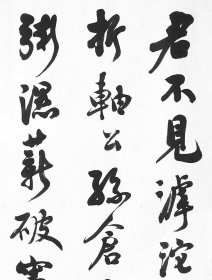 君不見滹沱
折軸公孫倉
粥濕薪破